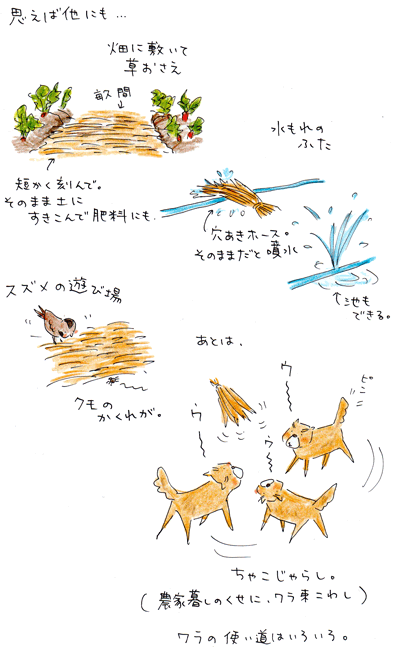 思えば他にも…
畑に敷いて
草おさえ
畝間
水もれの
ふた
短かく刻んで。
そのまま土に
すきこんで肥料にも。
穴あきホース。
そのままだと噴水
↑池も
できる。
スズメの遊び場
クモの
かくれが。
あとは、
ウ〜
ウ〜
ウ〜
ピーン
ちゃこじゃらし。
(農家暮しのくせに、ワラ束こわし)
ワラの使い道はいろいろ。